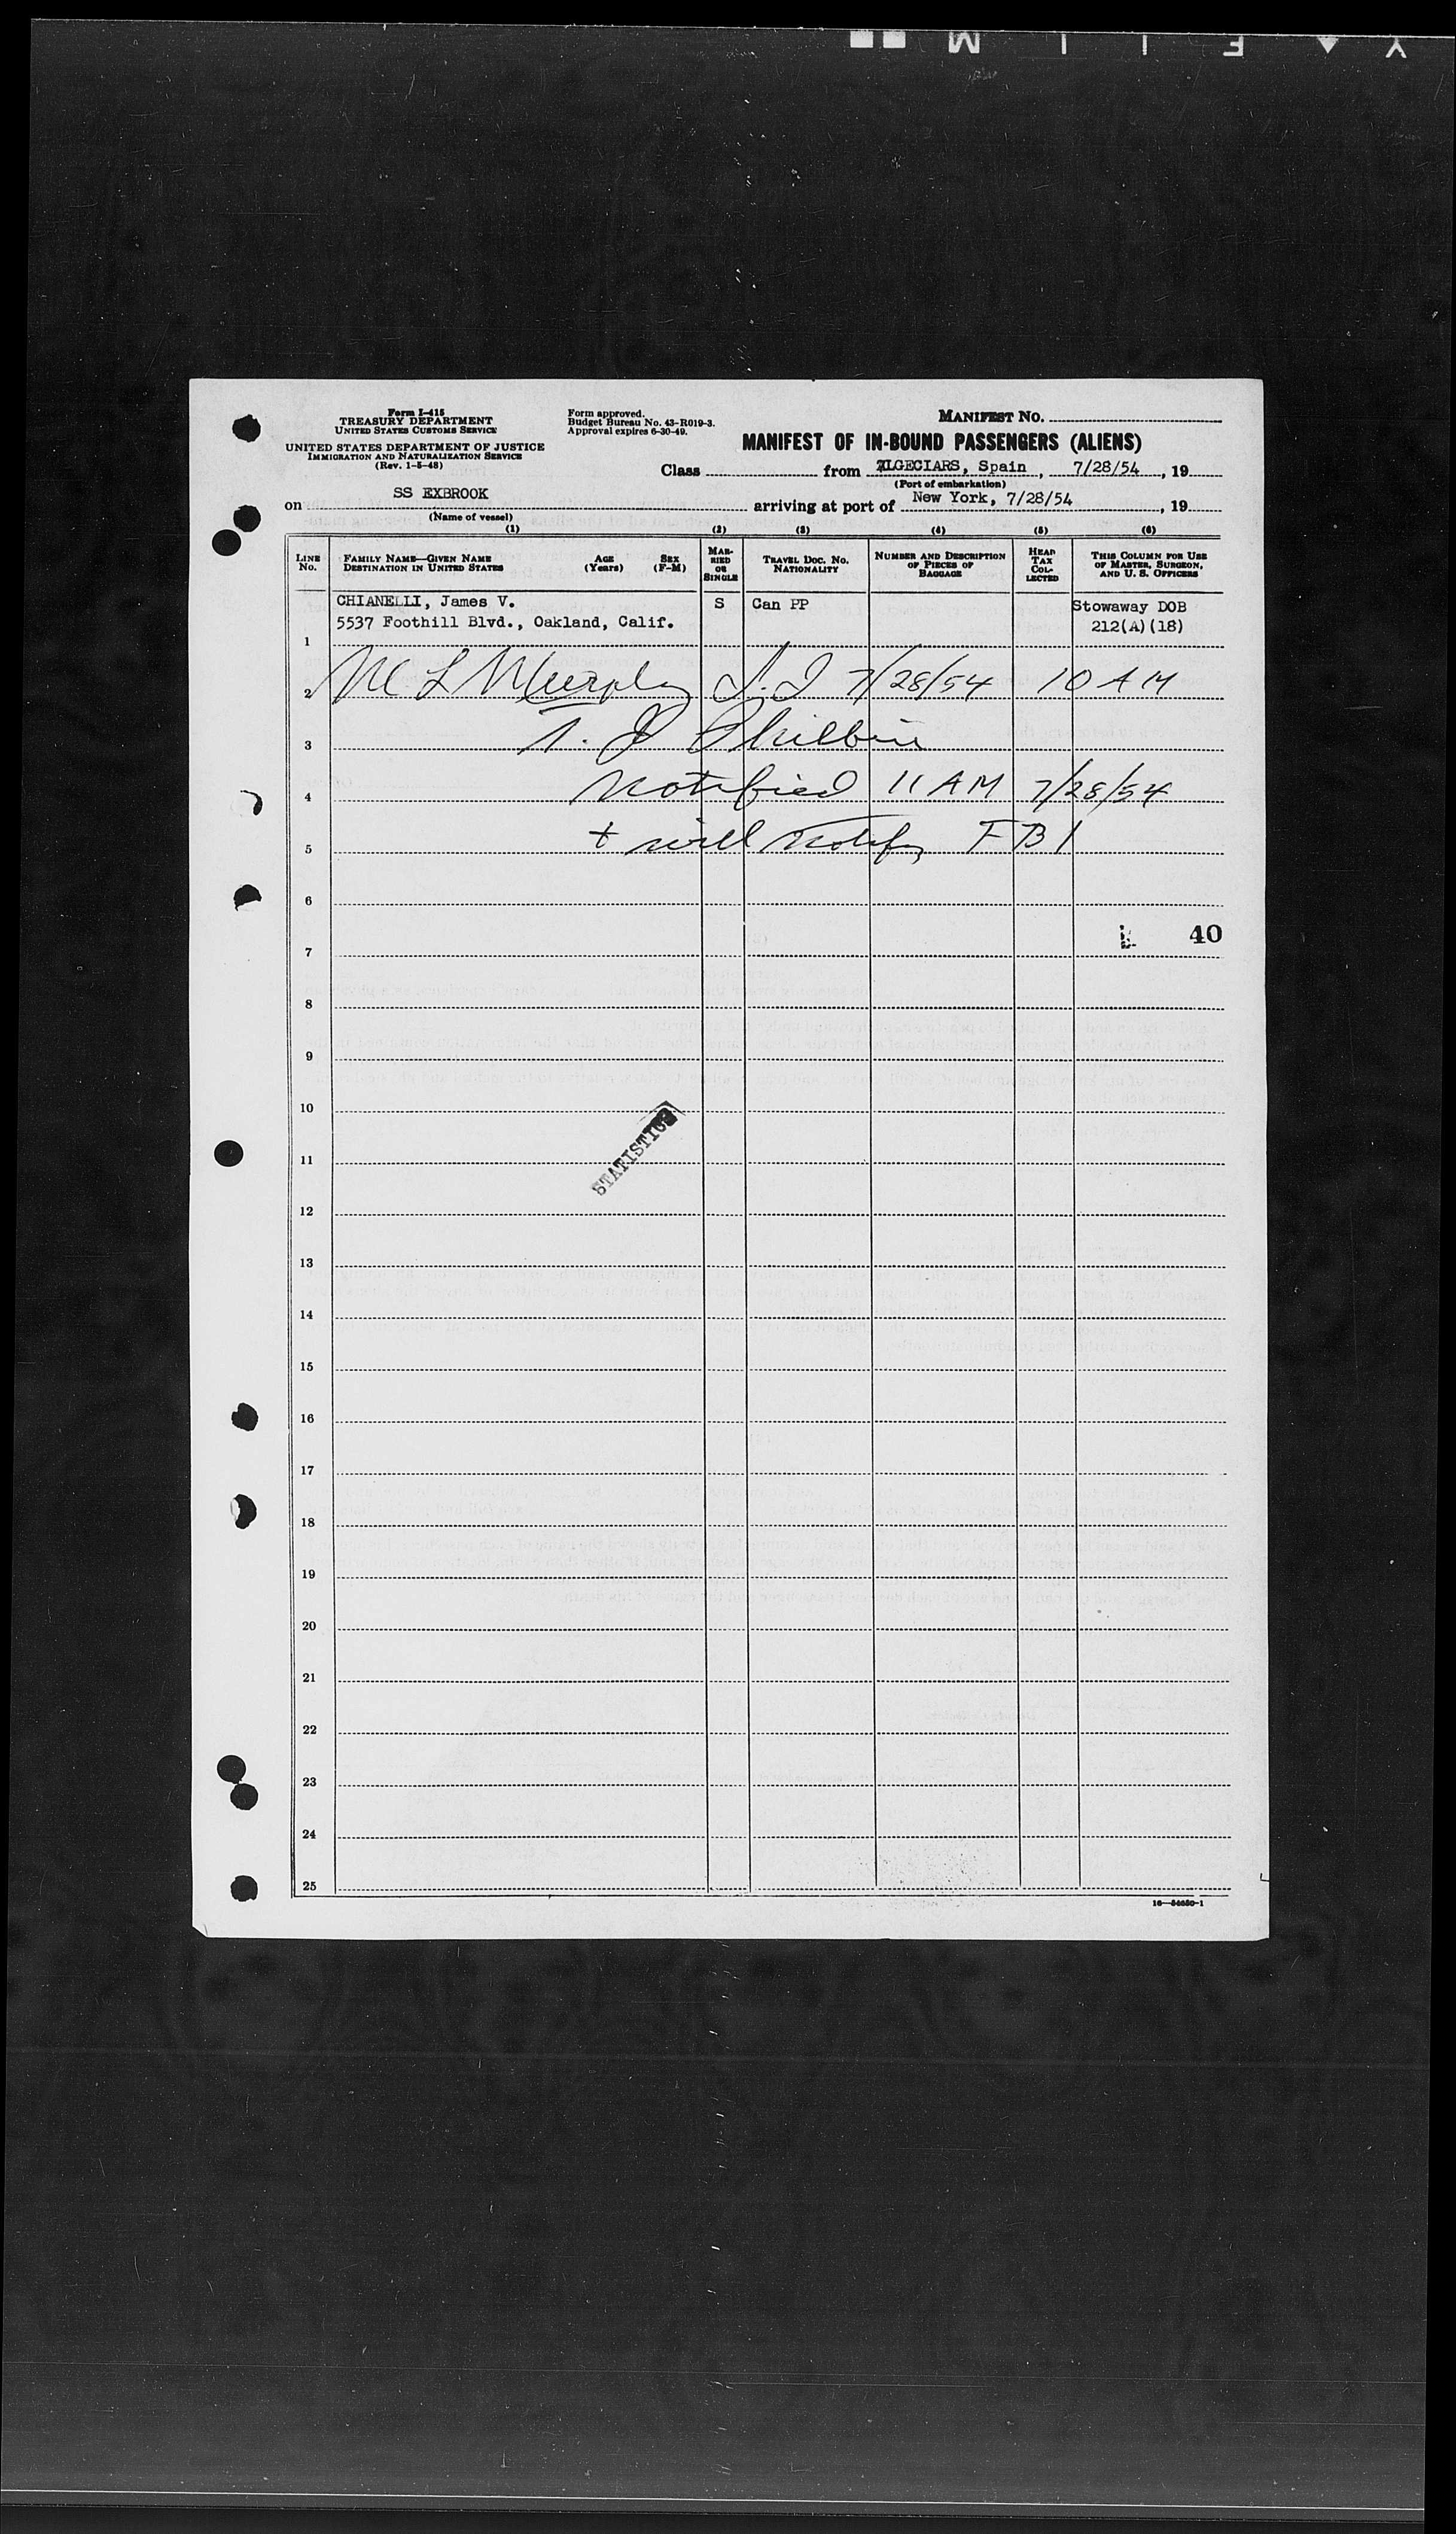 Form I-415
TREASURY DEPARTMENT
UNITED STATES CUSTOMS SERVICE
UNITED STATES DEPARTMENT OF JUSTICE
IMMIGRATION AND NATURALIZATION SERVICE
(Rev. 1-5-48)
Form approved.
Budget Bureau No. 43-R019-3.
Approval expires 6-30-49.
MANIFEST No.
MANIFEST OF IN-BOUND PASSENGERS (ALIENS)
Class from ALGECIARS, Spain, 7/28/54, 19
(Port of embarkation)
on SS EXBROOK arriving at port of New York, 7/28/54, 19
(Name of vessel)
(1) (2) (3) (4) (5) (6)
LINE No. FAMILY NAME—GIVEN NAME DESTINATION IN UNITED STATES AGE (Years) SEX (F-M) MARRIED OR SINGLE TRAVEL DOC. No. NATIONALITY NUMBER AND DESCRIPTION OF PIECES OF BAGGAGE HEAD TAX COLLECTED THIS COLUMN FOR USE OF MASTER, SURGEON, AND U. S. OFFICERS
CHIANELLI, James V. S Can PP Stowaway DOB
5537 Foothill Blvd., Oakland, Calif. 212(A)(18)
1
2 M L Murphy I.I 7/28/54 10 AM
3 T. J Philbin
4 Notified 11 AM 7/28/54
5 + will notify FBI
6
40
7
8
9
10
STATISTICS
11
12
13
14
15
16
17
18
19
20
21
22
23
24
25